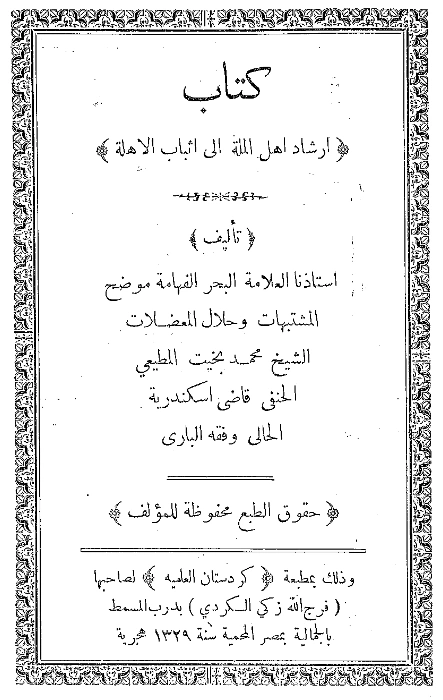 كتاب
﴿ ارشاد اهل الملة الى اثبات الاهلة ﴾
﴿ تأليف ﴾
استاذنا العلامة البحر الفهامة موضح
المشتبهات وحلال المعضلات
الشيخ محمد بخيت المطيعي
الحنفى قاضى اسكندرية
الحالى وفقه البارى
﴿ حقوق الطبع محفوظة للمؤلف ﴾
وذلك بمطبعة ﴿ كردستان العلميه ﴾ لصاحبها
( فرج الله زكي الكردي ) بدرب المسمط
بالجمالية بمصر المحمية سنة ١٣٢٩ هجرية